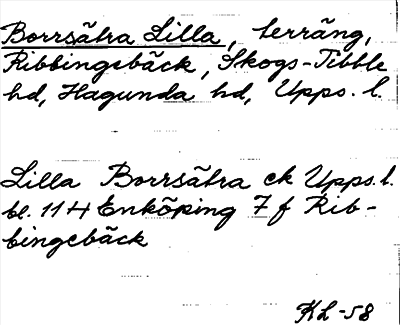 Borrsätra Lilla, terräng,
Ribbingebäck, Skogs-Tibble
hd, Hagunda hd, Upps. l.
Lilla Borrsätra ek Upps. l.
bl. 11 H Enköping 7 f Rib-
bingebäck
KL -58